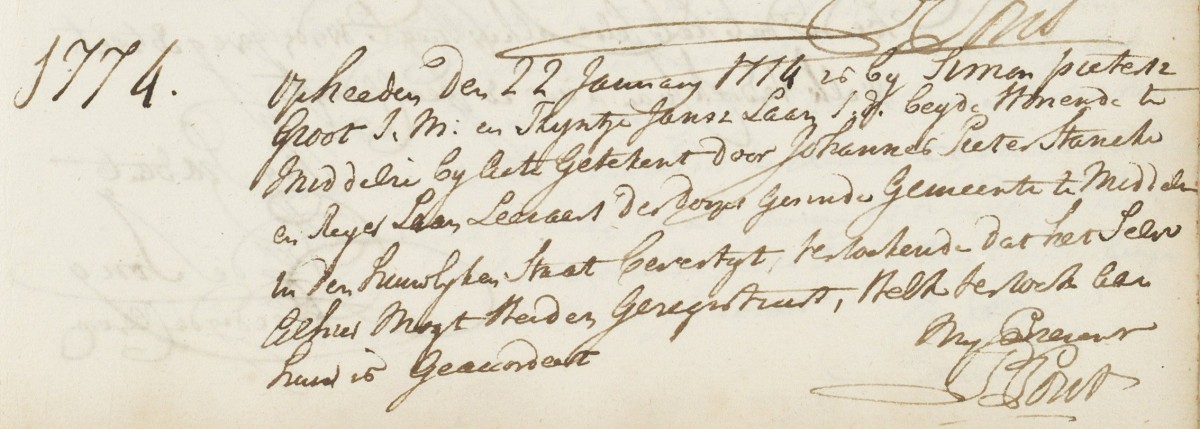 1774.
Op heeden den 22 January 1774 is by Simon pietersz
Groot J. M: en Tryntje Jansz Laan J. d. beyde Wonende te
Middelie by Acte Getekent door Johannes Pieter Stancke
en Reyer Laan Leeraars der doops Gesinde Gemeente te Middelie
in den Huwelyken Staat bevestigt, versoekende dat het Selve
Alhier Mogt Werden Geregistreert, Welk versoek Aan
hun is Geaccordeert
My Present